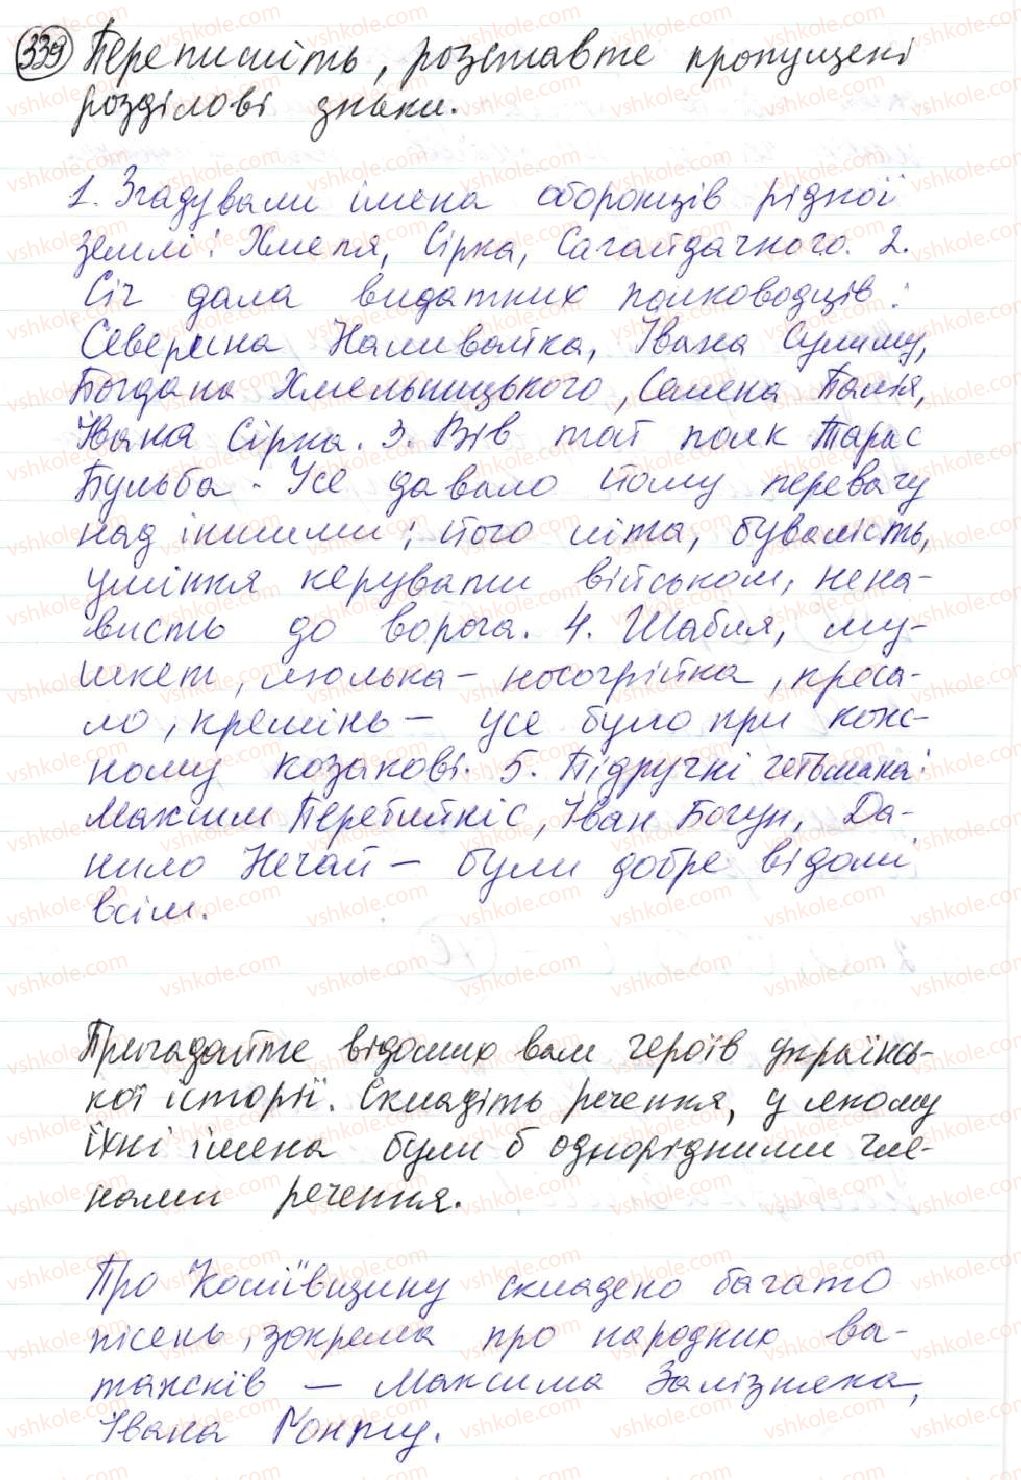 339 Перепишіть, розставте пропущені
розділові знаки.
1. Згадували імена оборонців рідної
землі: Хмеля, Сірка, Сагайдачного. 2.
Січ дала видатних полководців:
Северина Наливайка, Івана Сулиму,
Богдана Хмельницького, Семена Палія,
Івана Сірка. 3. Вів той полк Тарас
Бульба. Усе давало йому перевагу
над іншими: його літа, бувалість,
уміння керувати військом, нена-
висть до ворога. 4. Шабля, му-
шкет, люлька - носогрійка, креса-
ло, кремінь - усе було при кож-
ному козакові. 5. Підручні гетьмана:
Максим Перебийніс, Іван Богун, Да-
нило Нечай - були добре відомі
всім.
Пригадайте відомих вам героїв україн-
кої історії. Складіть речення, у якому
їхні імена були б однорідними чле-
нами речення.
Про Коліївщину складено багато
пісень, зокрема про народних ва-
тажків - Максима Залізняка,
Івана Гонту.